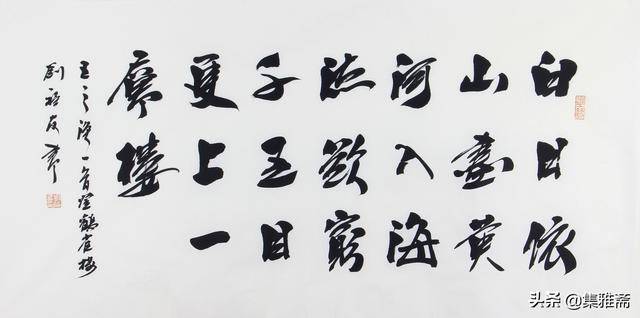 白日依
山盡黄
河入海
流欲窮
千里目
更上一
層樓
王之渙一首登鸛雀樓
劉友書
头条 @集雅斋